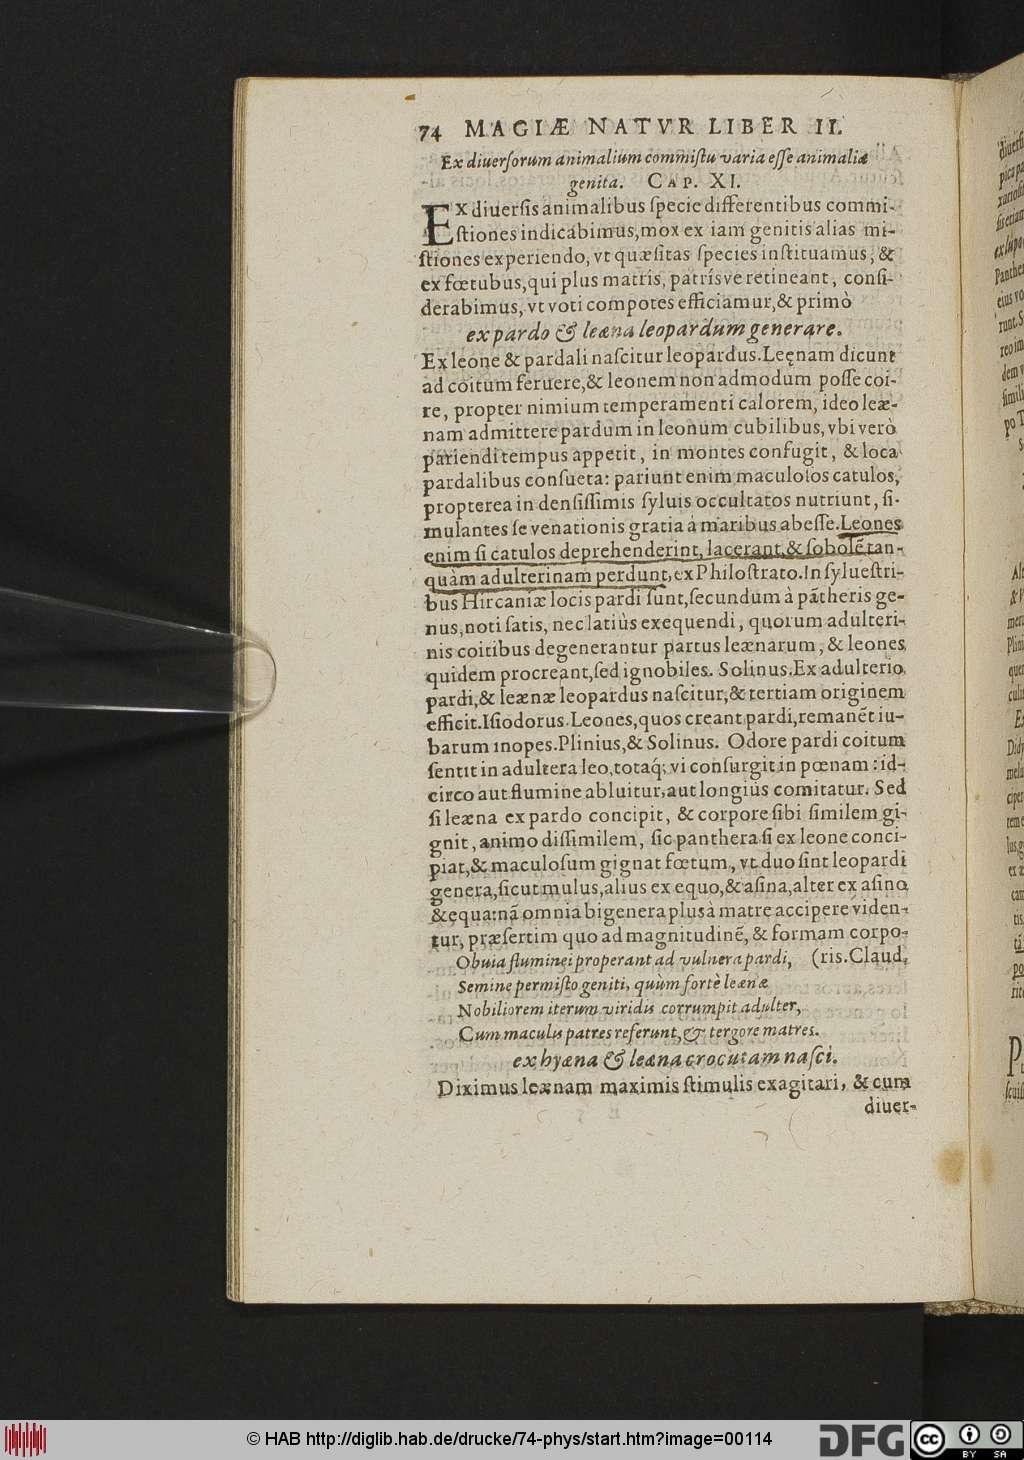 74 MAGIÆ NATVR LIBER II.
Ex diuersorum animalium commistu varia esse animalia
genita. CAP. XI.
EX diuersis animalibus specie differentibus commi-
stiones indicabimus, mox ex iam genitis alias mi-
stiones experiendo, vt quæsitas species instituamus, &
ex fœtubus, qui plus matris, patrísve retineant, consi-
derabimus, vt voti compotes efficiamur, & primò
ex pardo & leæna leopardum generare.
Ex leone & pardali nascitur leopardus. Leęnam dicunt
ad coitum feruere, & leonem non admodum posse coi-
re, propter nimium temperamenti calorem, ideo leæ-
nam admittere pardum in leonum cubilibus, vbi verò
pariendi tempus appetit, in montes confugit, & loca
pardalibus consueta: pariunt enim maculosos catulos,
propterea in densissimis syluis occultatos nutriunt, si-
mulantes se venationis gratia à maribus abesse. Leones
enim si catulos deprehenderint, lacerant, & sobolē tan-
quàm adulterinam perdunt, ex Philostrato. In syluestri-
bus Hircaniæ locis pardi sunt, secundum à pātheris ge-
nus, noti satis, nec latiùs exequendi, quorum adulteri-
nis coitibus degenerantur partus leænarum, & leones
quidem procreant, sed ignobiles. Solinus. Ex adulterio
pardi, & leænæ leopardus nascitur, & tertiam originem
efficit. Isiodorus. Leones, quos creant pardi, remanēt iu-
barum inopes. Plinius, & Solinus. Odore pardi coitum
sentit in adultera leo, totaq́; vi consurgit in pœnam: id-
circo aut flumine abluitur, aut longiùs comitatur. Sed
si leæna ex pardo concipit, & corpore sibi similem gi-
gnit, animo dissimilem, sic panthera si ex leone conci-
piat, & maculosum gignat fœtum, vt duo sint leopardi
genera, sicut mulus, alius ex equo, & asina, alter ex asino
& equa: nā omnia bigenera plus à matre accipere viden-
tur, præsertim quo ad magnitudinē, & formam corpo-
Obuia fluminei properant ad vulnera pardi, (ris. Claud.
Semine permisto geniti, quùm fortè leænæ
Nobiliorem iterum viridis corrumpit adulter,
Cum maculis patres referunt, & tergore matres.
ex hyæna & leæna crocutam nasci.
Diximus leænam maximis stimulis exagitari, & cum
diuer-
© HAB http://diglib.hab.de/drucke/74-phys/start.htm?image=00114
DFG
cc
BY SA